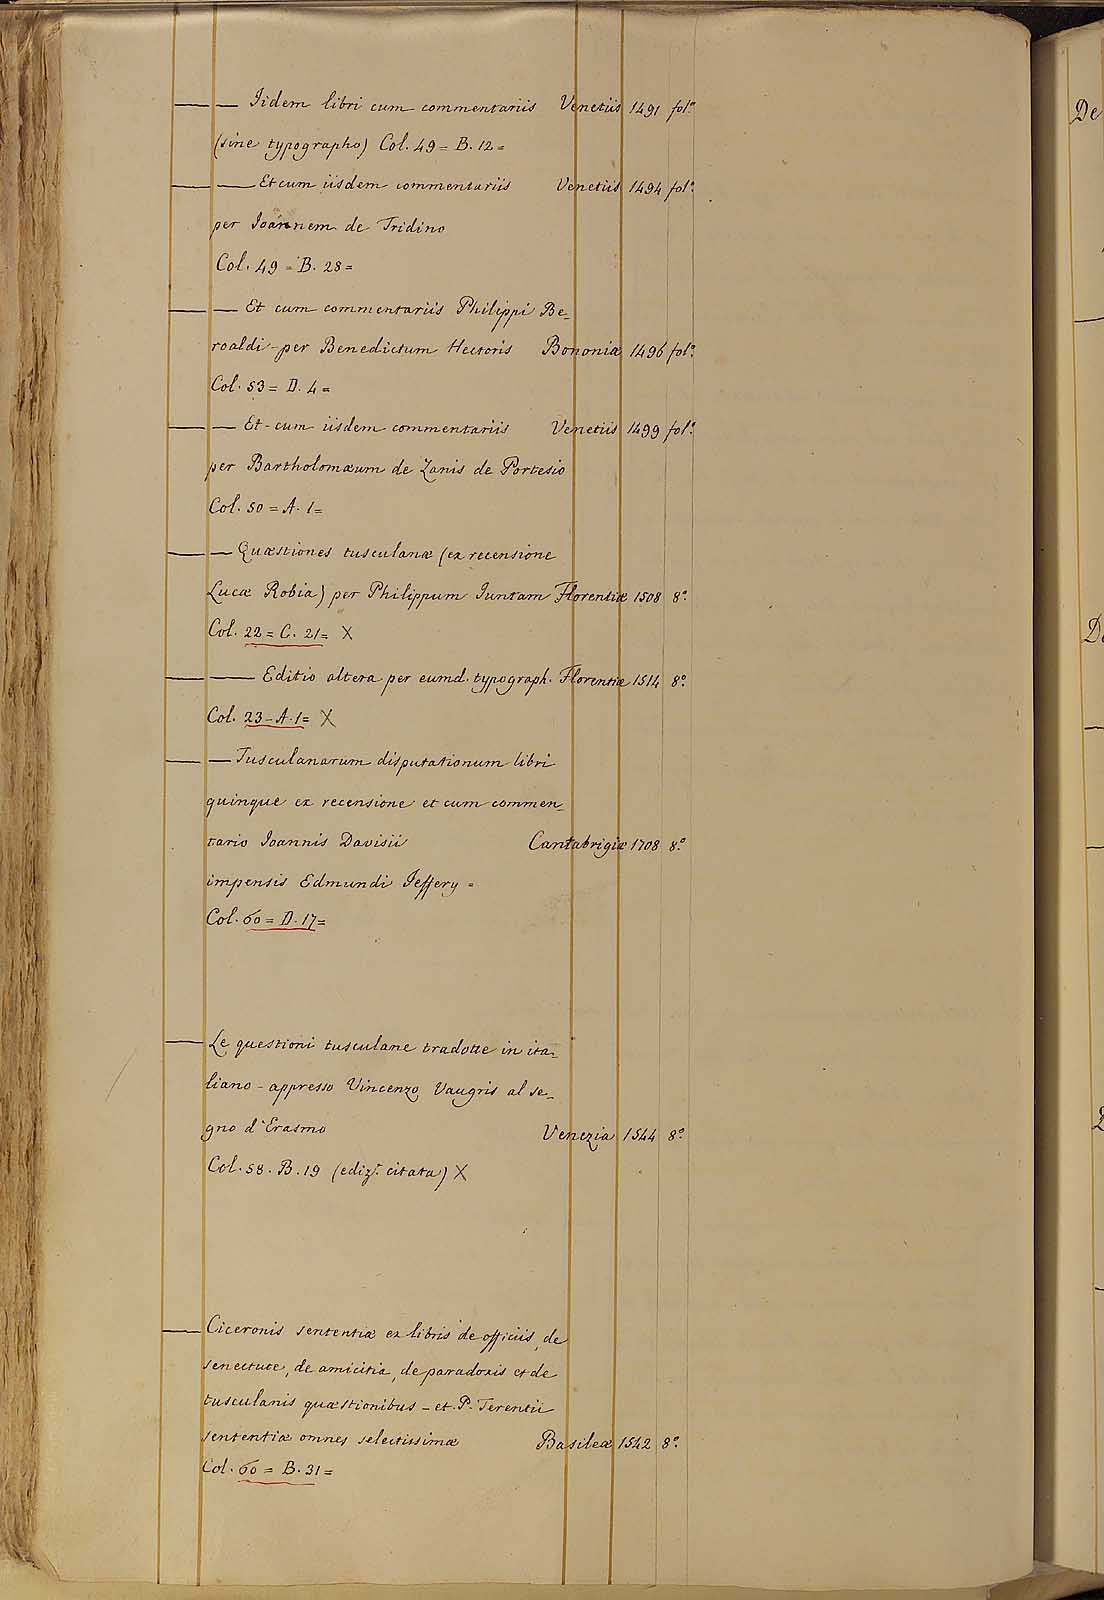 — — Iidem libri cum commentariis Venetiis 1491 fol.º
(sine typographo) Col. 49 = B. 12 =
— — Et cum iisdem commentariis Venetiis 1494 fol.º
per Ioannem de Tridino
Col. 49 = B. 28 =
— — Et cum commentariis Philippi Be-
roaldi - per Benedictum Hectoris Bononiæ 1496 fol.º
Col. 53 = D. 4 =
— — Et - cum iisdem commentariis Venetiis 1499 fol.º
per Bartholomæum de Zanis de Portesio
Col. 50 = A. 1 =
— — Quæstiones tusculanæ (ex recensione
Lucæ Robia) per Philippum Juntam Florentiæ 1508 8.º
Col. 22 = C. 21 = X
— — Editio altera per eumd. typograph. Florentiæ 1514 8.º
Col. 23 - A. 1 = X
— — Tusculanarum disputationum libri
quinque ex recensione et cum commen-
tario Ioannis Davisii Cantabrigiæ 1708 8.º
impensis Edmundi Jeffery =
Col. 60 = D. 17 =
— Le questioni tusculane tradotte in ita-
liano - appresso Vincenzo Vaugris al se-
gno d'Erasmo Venezia 1544 8.º
Col. 58. B. 19 (ediz.e citata) X
— Ciceronis sententiæ ex libris de officiis, de
senectute, de amicitia, de paradoxis et de
tusculanis quæstionibus - et P. Terentii
sententiæ omnes selectissimæ Basileæ 1542 8.º
Col. 60 = B. 31 =
De